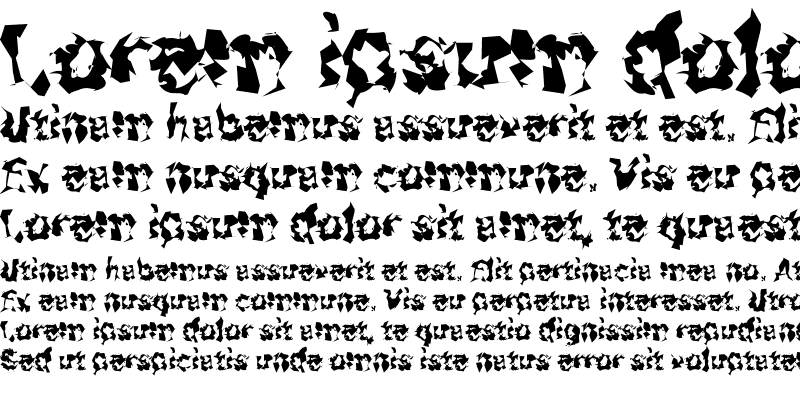 Lorem ipsum dolo
Utinam habemus assueverit et est. Ali
Ex eam nusquam commune. Vis eu pe
Lorem ipsum dolor sit amet, te quaest
Utinam habemus assueverit et est. Alit pertinacia mea no. At
Ex eam nusquam commune. Vis eu perpetua interesset. Utro
Lorem ipsum dolor sit amet, te quaestio dignissim repudian
Sed ut perspiciatis unde omnis iste natus error sit voluptate